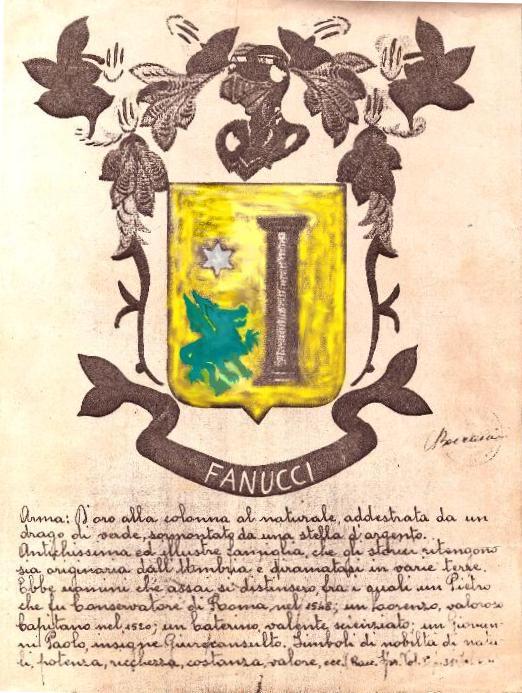 FANUCCI
Arma: D'oro alla colonna al naturale, addestrata da un
drago di verde, sormontato da una stella d'argento.
Antichissima ed illustre famiglia, che gli storici ritengono
sia originaria dall'Umbria e diramatasi in varie terre.
Ebbe uomini che assai si distinsero, fra i quali un Pietro
che fu Conservatore di Roma nel 1548; un Lorenzo, valoroso
Capitano nel 1550; un Caterino, valente scienziato; un Giovan-
ni Paolo, insigne Giureconsulto. Simboli di nobiltà di
potenza, ricchezza, costanza, valore, ecc.